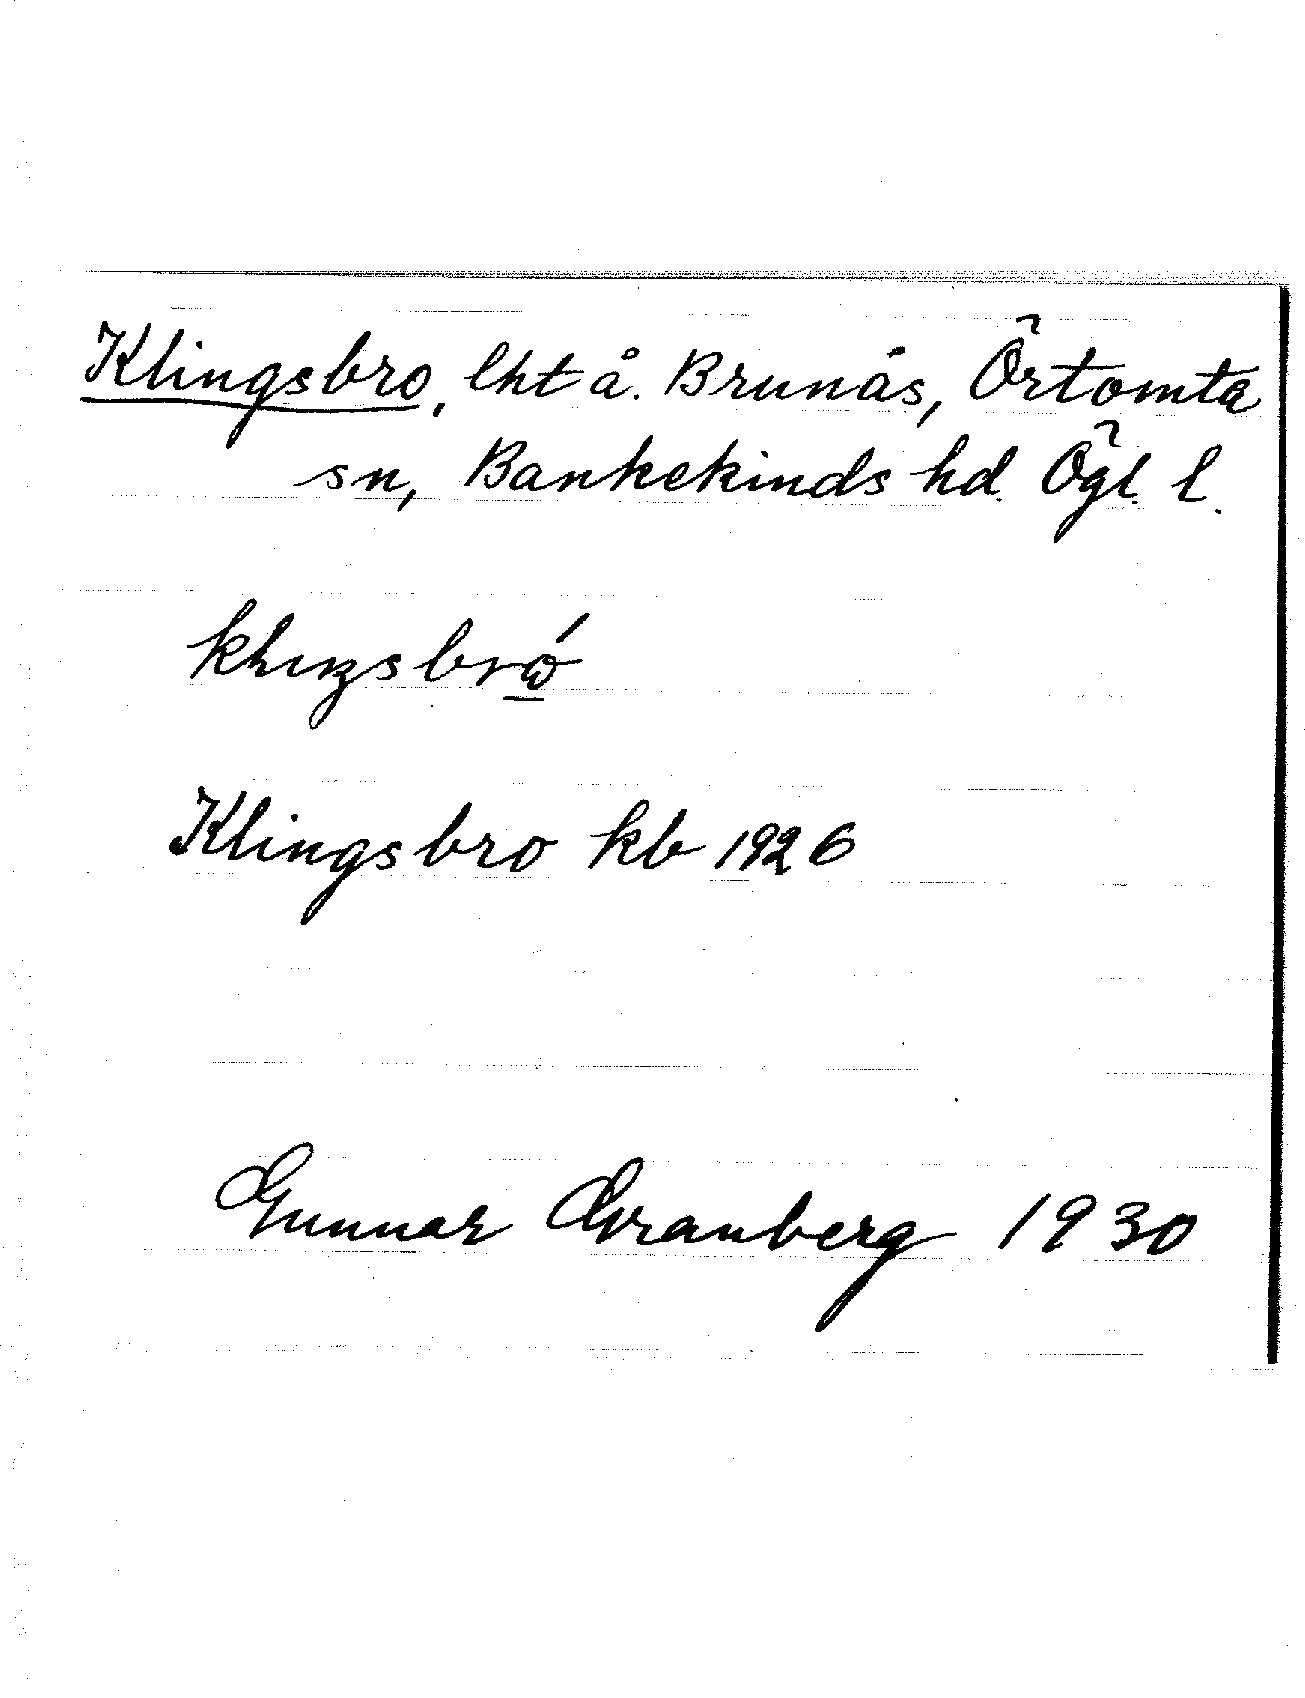 Klingsbro, lht å. Brunås, Örtomta
sn, Bankekinds hd. Ögl. l.
Klingsbro kb 1926
Gunnar Granberg 1930